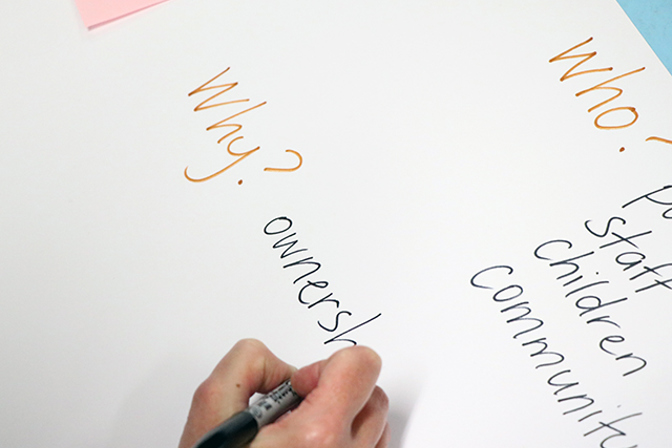 Why?
ownersh
Who?
staff
children
communit